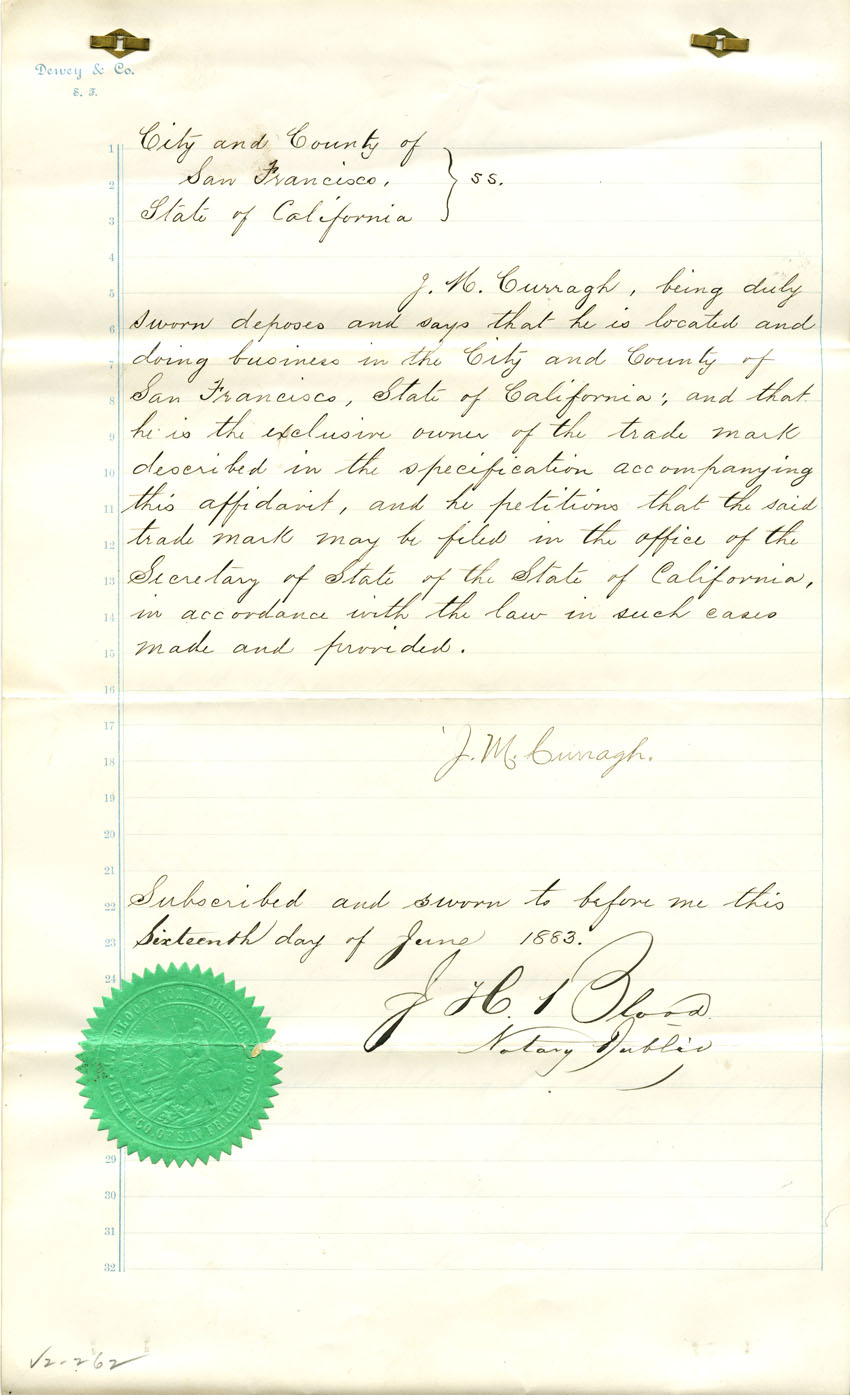 Dewey & Co.
S. F.
1 City and County of
2 San Francisco, } ss.
3 State of California
4
5 J. M. Curragh, being duly
6 sworn deposes and says that he is located and
7 doing business in the City and County of
8 San Francisco, State of California; and that
9 he is the exclusive owner of the trade mark
10 described in the specification accompanying
11 this affidavit, and he petitions that the said
12 trade mark may be filed in the office of the
13 Secretary of State of the State of California,
14 in accordance with the law in such cases
15 made and provided.
16
17
18 J. M. Curragh.
19
20
21
22 Subscribed and sworn to before me this
23 Sixteenth day of June 1883.
24 J H. Blood
Notary Public
CITY & CO. OF SAN FRANCISCO
29
30
31
32
V2-262